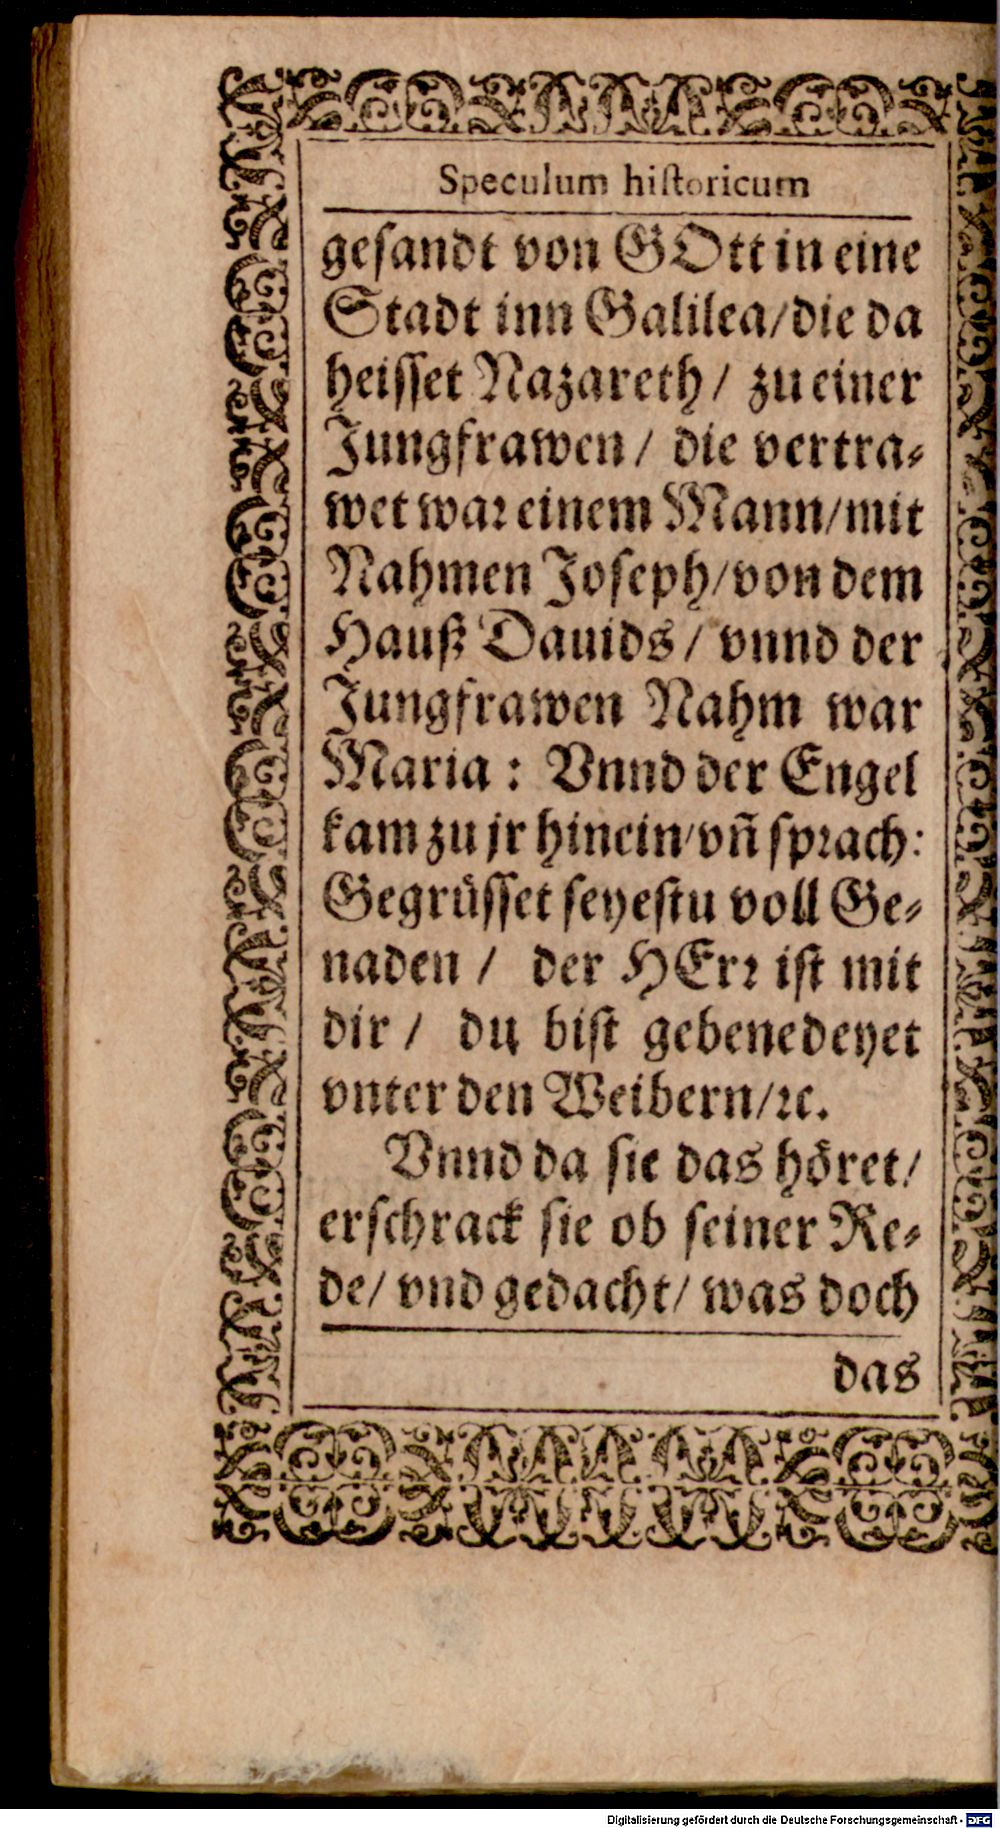 Speculum hiſtoricum
geſandt von GOtt in eine
Stadt inn Galilea/die da
heiſſet Nazareth/ zu einer
Jungfrawen/ die vertra⸗
wet waꝛ einem Mann/mit
Nahmen Joſeph/von dem
Hauß Dauids/ vnnd der
Jungfrawen Nahm war
Maria: Vnnd der Engel
kam zu jr hinein/vn̄ ſpꝛach:
Gegrüſſet ſeyeſtu voll Ge⸗
naden/ der HErꝛ iſt mit
dir/ du biſt gebenedeyet
vnter den Weibern/ꝛc.
Vnnd da ſie das höret/
erſchrack ſie ob ſeiner Re⸗
de/ vnd gedacht/ was doch
das
Digitalisierung gefördert durch die Deutsche Forschungsgemeinschaft - DFG